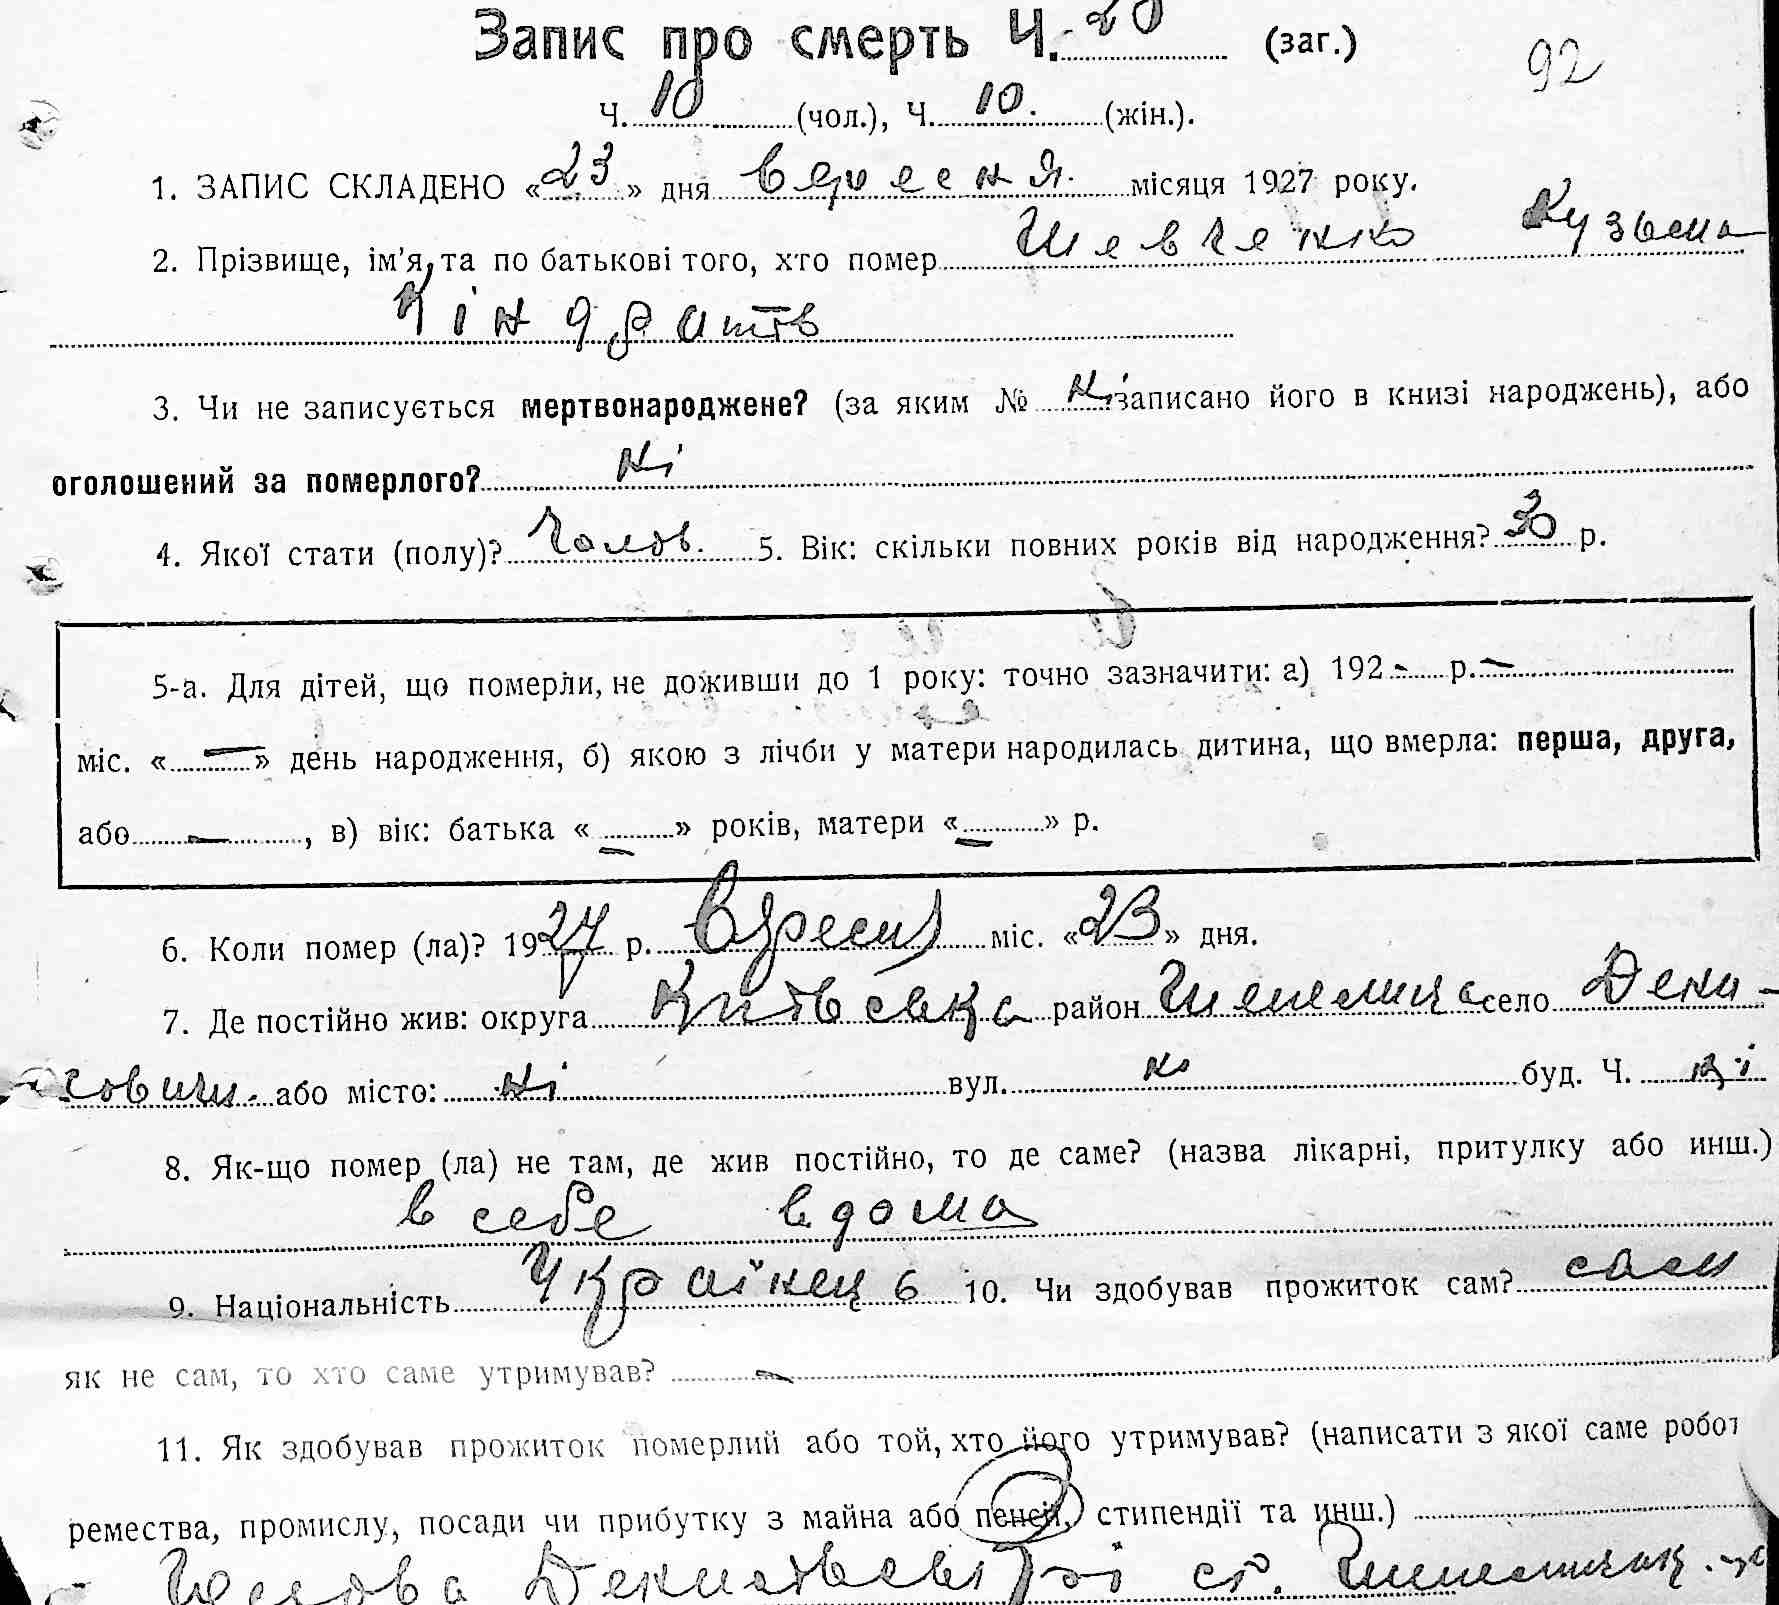 Запис про смерть Ч. 20 (заг.)
92
Ч. 10 (чол.), Ч. 10. (жін.).
1. ЗАПИС СКЛАДЕНО «23» дня вересня місяця 1927 року.
2. Прізвище, ім’я, та по батькові того, хто помер Шевченко Кузьма
3. Чи не записується мертвонароджене? (за яким № ні записано його в книзі народжень), або
оголошений за померлого? ні
4. Якої стати (полу)? Чолов. 5. Вік: скільки повних років від народження? 30 р.
5-а. Для дітей, що померли, не доживши до 1 року: точно зазначити: а) 192 - р. -
міс. « — » день народження, б) якою з лічби у матери народилась дитина, що вмерла: перша, друга,
або —, в) вік: батька « — » років, матери « — » р.
6. Коли помер (ла)? 1927 р. Вресня міс. «23» дня.
7. Де постійно жив: округа Київська район село Дени-
совичи. або місто: ні вул. ні буд. Ч. ні
8. Як-що помер (ла) не там, де жив постійно, то де саме? (назва лікарні, притулку або инш.)
в себе вдома
9. Національність Українець 10. Чи здобував прожиток сам? сам
як не сам, то хто саме утримував? —
11. Як здобував прожиток померлий або той, хто його утримував? (написати з якої саме робот
ремества, промислу, посади чи прибутку з майна або пенсії, стипендії та инш.)
Голова